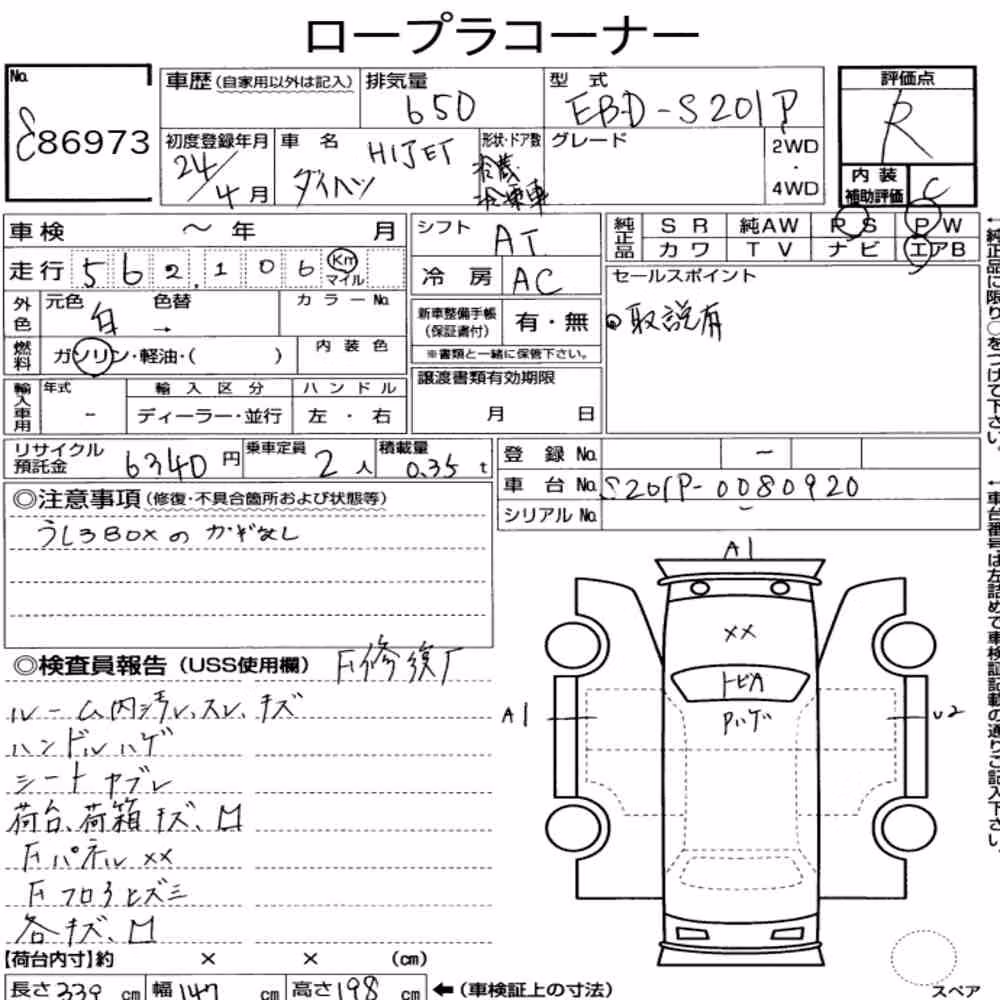 ロープラコーナー
No. 86973
車歴（自家用以外は記入）
排気量 650
型式 EBD-S201P
評価点 R
初度登録年月 24/4月
車名 ダイハツ HIJET
形状・ドア数 冷蔵冷凍車
グレード
2WD・4WD
内装補助評価 C
車検 〜 年 月
シフト AT
純正品 SR 純AW PS PW
カワ TV ナビ エアB
走行 562,106 Km マイル
冷房 AC
セールスポイント
取説有
外色 元色 白 色替 → カラーNo.
新車整備手帳（保証書付） 有・無
※書類と一緒に保管下さい。
燃料 ガソリン・軽油・（ ） 内装色
譲渡書類有効期限
月 日
輸入車用 年式 - 輸入区分 ハンドル
ディーラー・並行 左・右
リサイクル預託金 6340円 乗車定員 2人 積載量 0.35t
登録No. -
車台No. S201P-0080920
シリアルNo. -
◎注意事項（修復・不具合箇所および状態等）
うしろBOXのカギなし
◎検査員報告（USS使用欄） F修復有
ルーム内汚レ、スレ、キズ
ハンドルハゲ
シートヤブレ
荷台、荷箱キズ、凹
Fパネル××
Fフロアヒズミ
各キズ、凹
A1
××
トビA
Pハゲ
A1
U2
【荷台内寸】約 × × （cm）
長さ339cm 幅147cm 高さ198cm ←（車検証上の寸法）
スペア
←純正品に限り○をつけて下さい。
←車台番号は左詰めで車検証記載の通りご記入下さい。